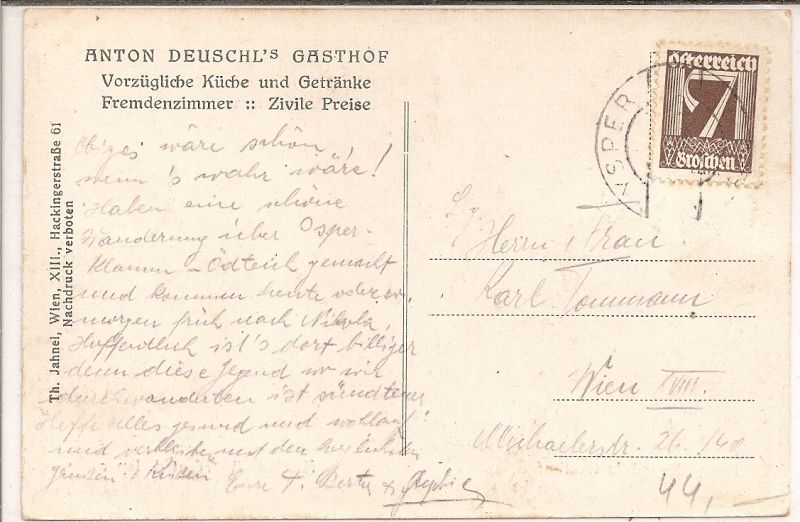 ANTON DEUSCHL'S GASTHOF
Vorzügliche Küche und Getränke
Fremdenzimmer :: Zivile Preise
Th. Jahnel, Wien, XIII., Hackingerstraße 61
Nachdruck verboten
Obiges wäre schön,
wenn's wahr wäre!
Haben eine schöne
Wanderung über Ysper-
klamm - Ödteich gemacht
und kommen heute oder
morgen früh nach Nikola,
Hoffentlich ist's dort billiger
denn diese Gegend wo wir
durchwanderten ist sündteuer
Hoffe alles gesund und wohlauf
und verbleiben mit den
Grüßen Küssen Eure Berta &
YSPER
Österreich
7
Groschen
Herrn & Frau
Karl Tommann
Wien XVIII.
Michaelerstr. 26
44,-